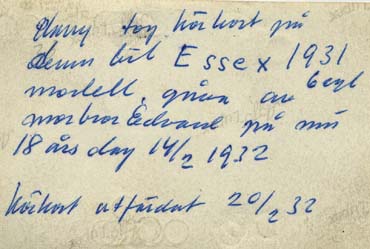 Harry tog körkort på
denna bil Essex 1931
modell, gåva av
morbror Edvard på min
18 års dag 14/2 1932
Körkort utfärdat 20/2 32